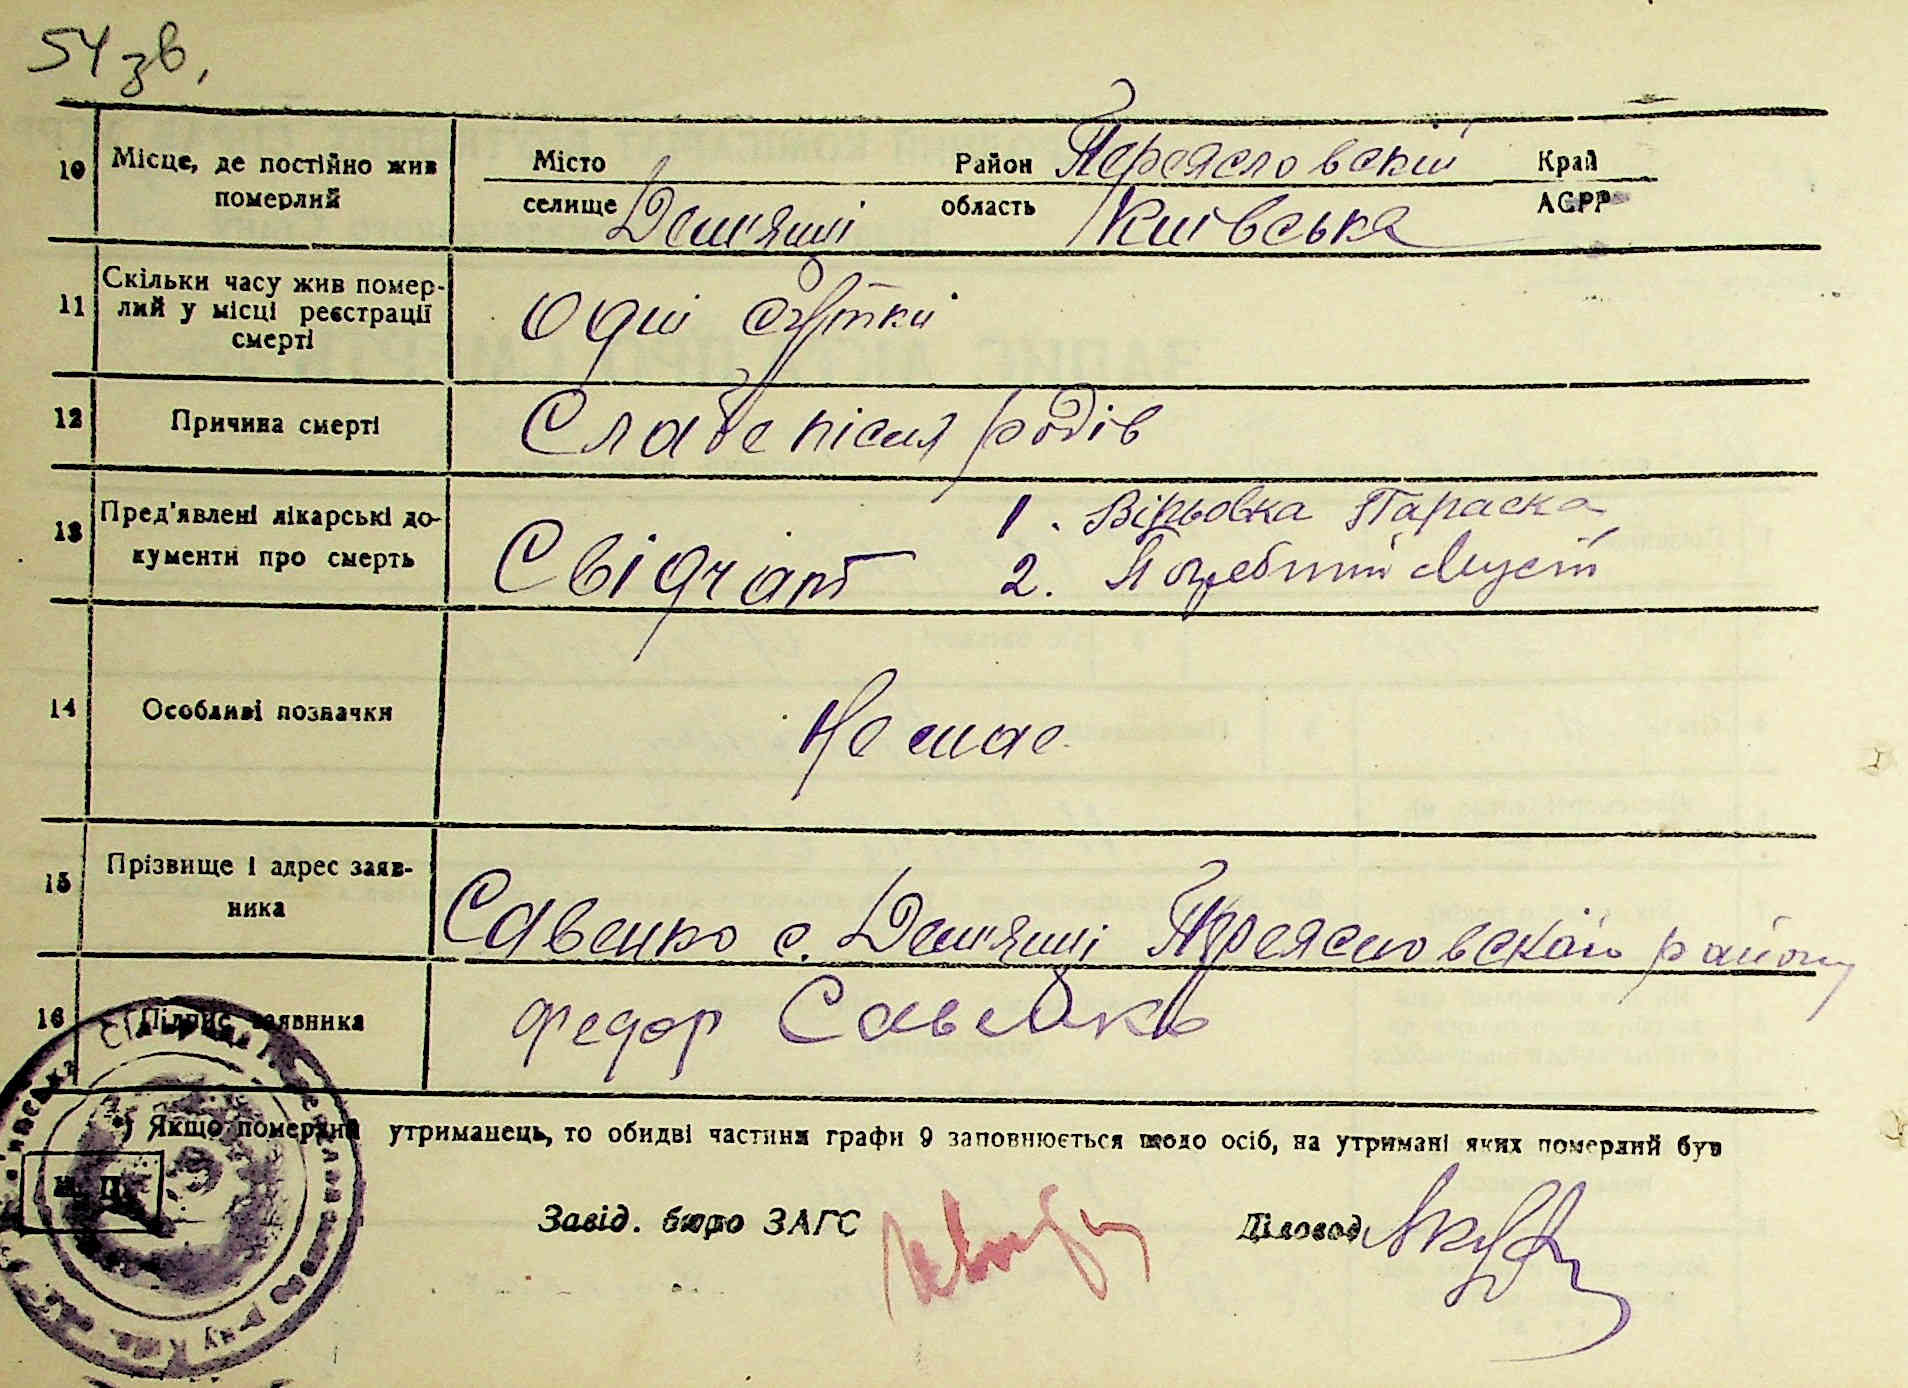 54 зв.
10 Місце, де постійно жив померлий Місто Район Переясловскій Край
селище Дем'янці область Київська АСРР
11 Скільки часу жив помер-
лий у місці реєстрації
смерті
Одні сутки
12 Причина смерті Слабе після родів
13 Пред'явлені лікарські до-
кументи про смерть
Свідчать 1. Вірьовка Параска
2. Погребний Мусій
14 Особливі позначки Не має
15 Прізвище і адрес заяв-
ника
Савенко с. Дем'янці Переясловского району
16 Підпис заявника Федор Савенко
*) Якщо померлий утриманець, то обидві частини графи 9 заповнюється щодо осіб, на утримані яких померлий був
М. П.
Завід. бюро ЗАГС Діловод